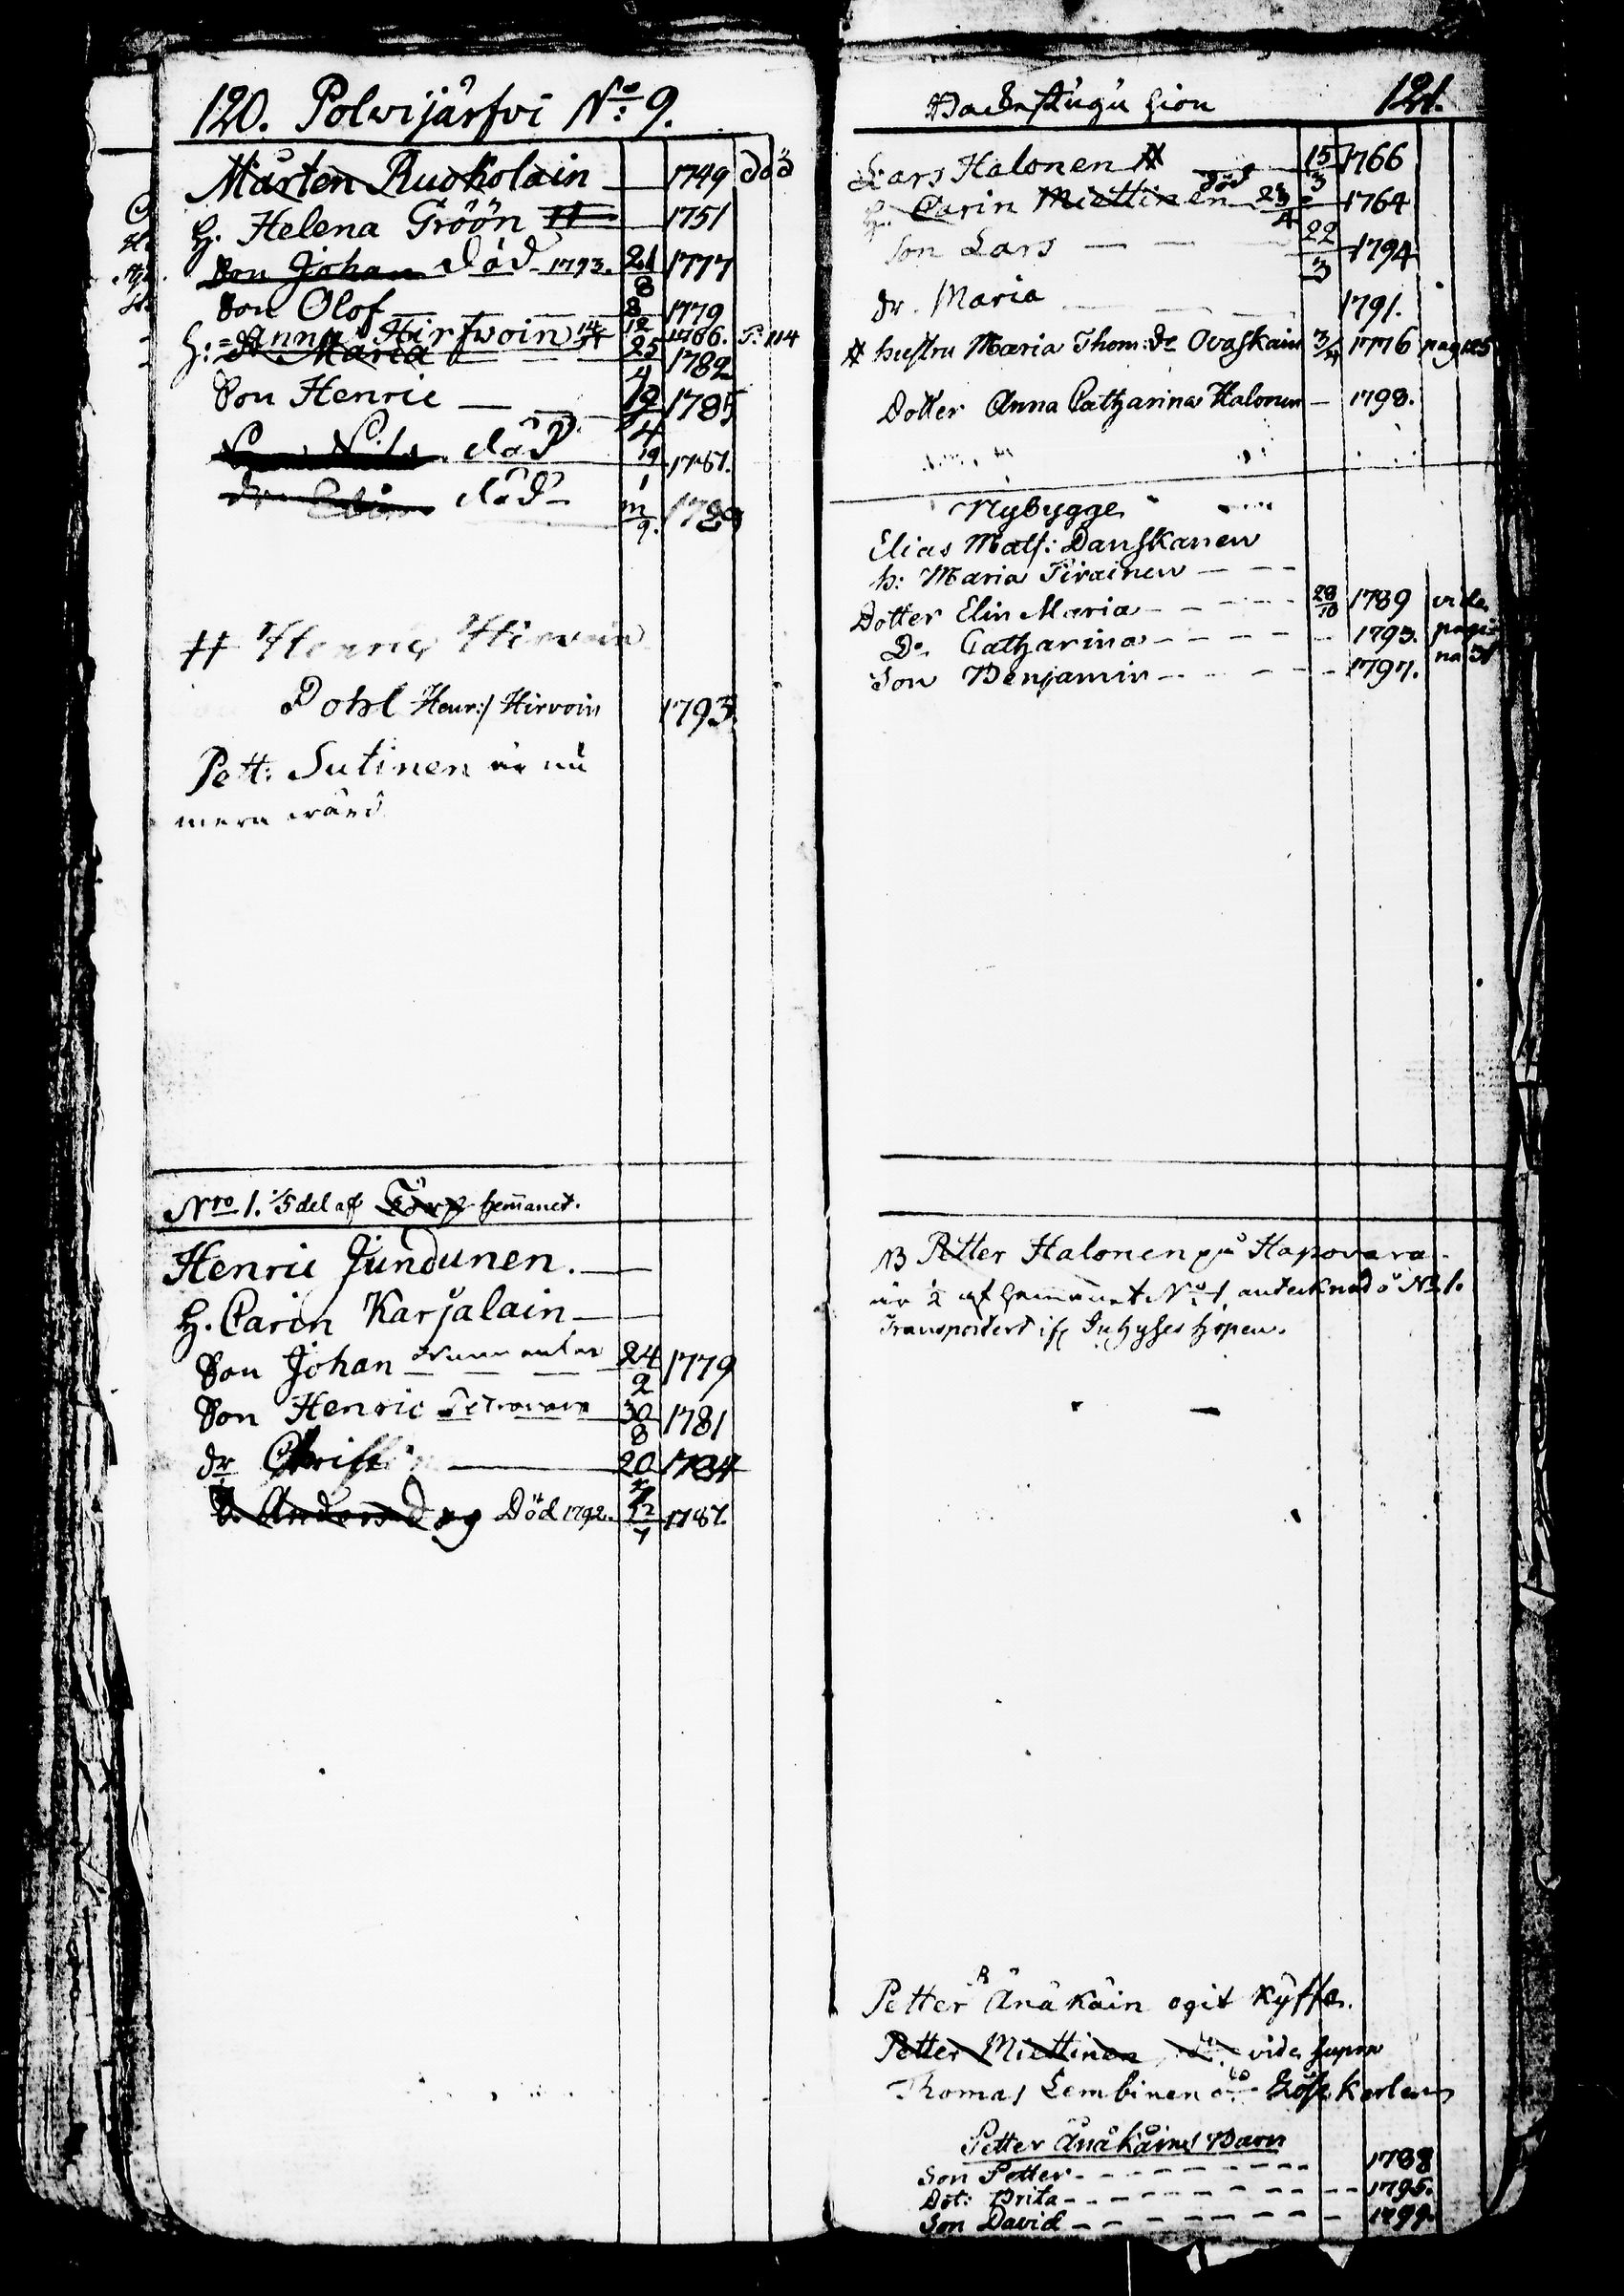 120. Polvijärfvi No: 9.
Mårten Ruokolain — 1749 död
H. Helena Gröön # 1751
Son Johan död 1793. 21/8 1777
Son Olof 8/12 1779
H: Anna Hirfwoin 14/7 1786. P: 114
Dr Maria 25/4 1782
Son Henric — 19/4 1785
Son Nils död 19/1 1787.
dr död 9. 1789
# Henric Hirvoin
Dohl Henr: Hirvoin 1793
Pett: Sutinen är nu
mera
Nro 1. 1/5 del af hem̄anet.
Henric Jundunen. —
H. Carin Karjalain —
Son Johan 24/2 1779
Son Henric 30/8 1781
dr Christin — 20 1784
S. Anders Död 1792. 12 1787.
Backstugu hion 121.
Lars Halonen # 15/3 1766
H. Carin Miettinen död 23/4 1764
Son Lars — — 22/3 1794
dr. Maria — 1791.
# hustru Maria Thom: Dr Ovaskain 3/4 1776 pag 125
Dotter Anna Catharina Halonen — 1798.
Nybygge
Elias Mats: Danskanen
h: Maria Tirainen — — —
Dotter Elin Maria — — — — 28/10 1789 vide
Do Catharina — — — — — 1793. pagi
Son Benjamin — — — — 1797. na 31
NB Petter Halonen på Hapovara
är å af hemmanet No 1, antecknad å No 1.
Transporterd Inhyses hopen.
Petter Änäkäin ogit Kyffe.
Petter Miettinen vide supra
Thomas Lembinen do
Petter Änäkäins Barn
Son Petter — — — — — — 1788
Dot: Brita — — — — — — 1795.
Son David — — — — — — 1799.